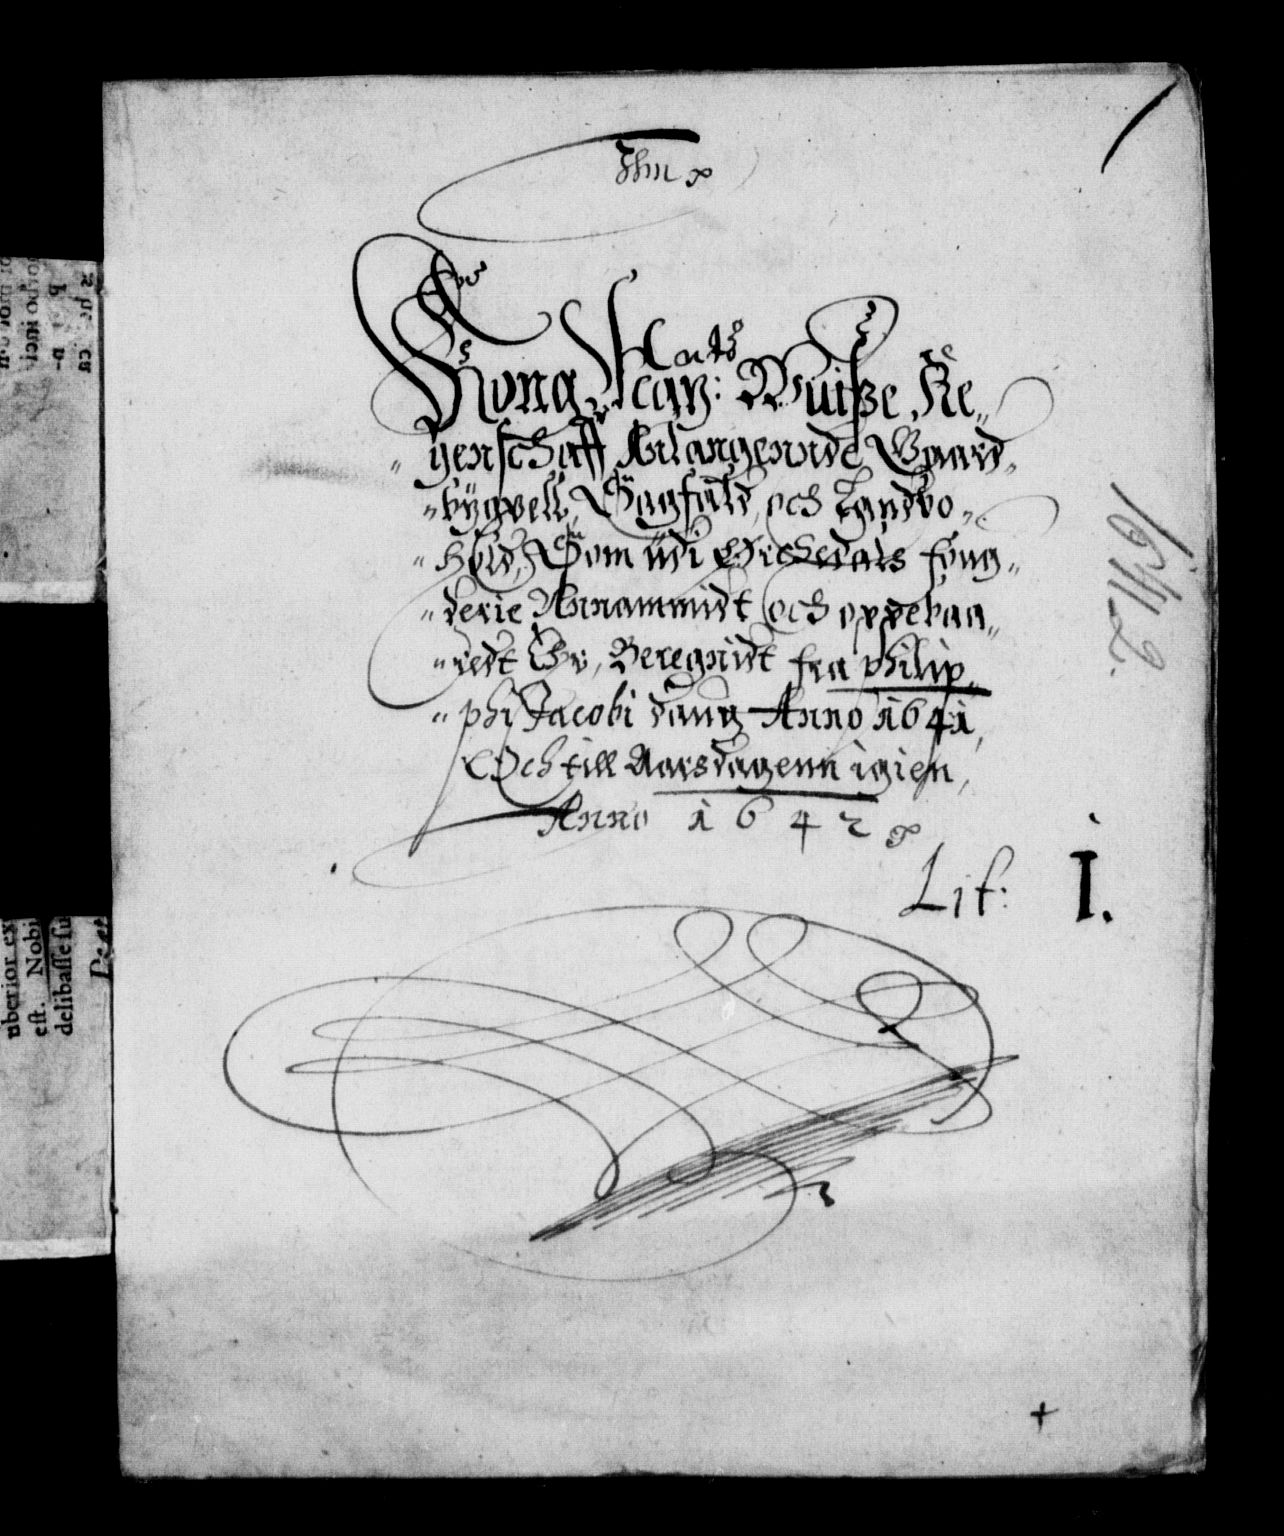 Kong: Maytˢ: Wuisze Re„
„genschaff Anlangennde Gaard„
„bÿgvell, Sagfald, och Landbo„
„Hold, Som udi Orchedals foug„
„derie Annammidt och opdebaa„
„redt Er, Beregnidt fra philip„
„phi Jacobi daug Anno 1641,
Och till Aarsdagenn igien,
Anno 1642
Lit: I.
1642.
uberior ex
est. Nobi
delibasse su